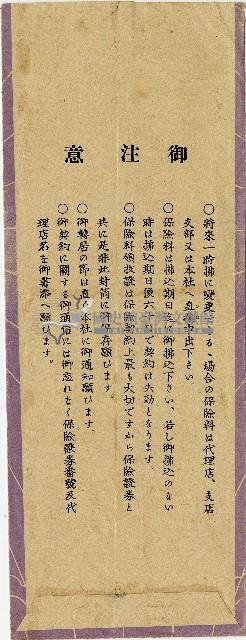 御注意
○將來一時拂に變更さるゝ場合の保險料は代理店、支店
支部又は本社へ直接御申出下さい
○保險料は拂込期日迄に御拂込下さい、若し御拂込のない
時は拂込期日後六十日で契約は失効となります。
○保險料領收證は保險契約上最も大切ですから保險證券と
共に是非此封筒に御保存願ひます。
○御轉居の節は直 本社に御通知願ひます。
○御契約に關する御通信には御忘れなく保險證券番號及代
理店名を御書添へ願ひます。